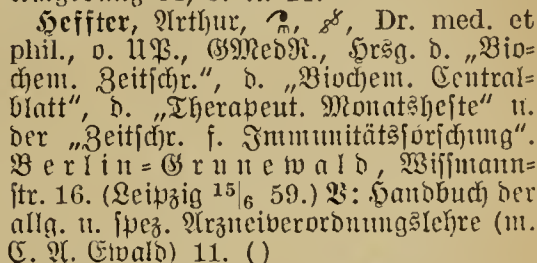 Heffter, Arthur, Dr. med. et
phil., o. UP., GMedR., Hrsg. d. „Bio-
chem. Zeitschr.", d. „Biochem. Central-
blatt", d. „Therapeut. Monatshefte" u.
der „Zeitschr. f. Immunitätsforschung".
Berlin-Grunewald, Wissmann-
str. 16. (Leipzig 15|6 59.) V: Handbuch der
allg. u. spez. Arzneiverordnungslehre (m.
C. A. Ewald) 11. ()